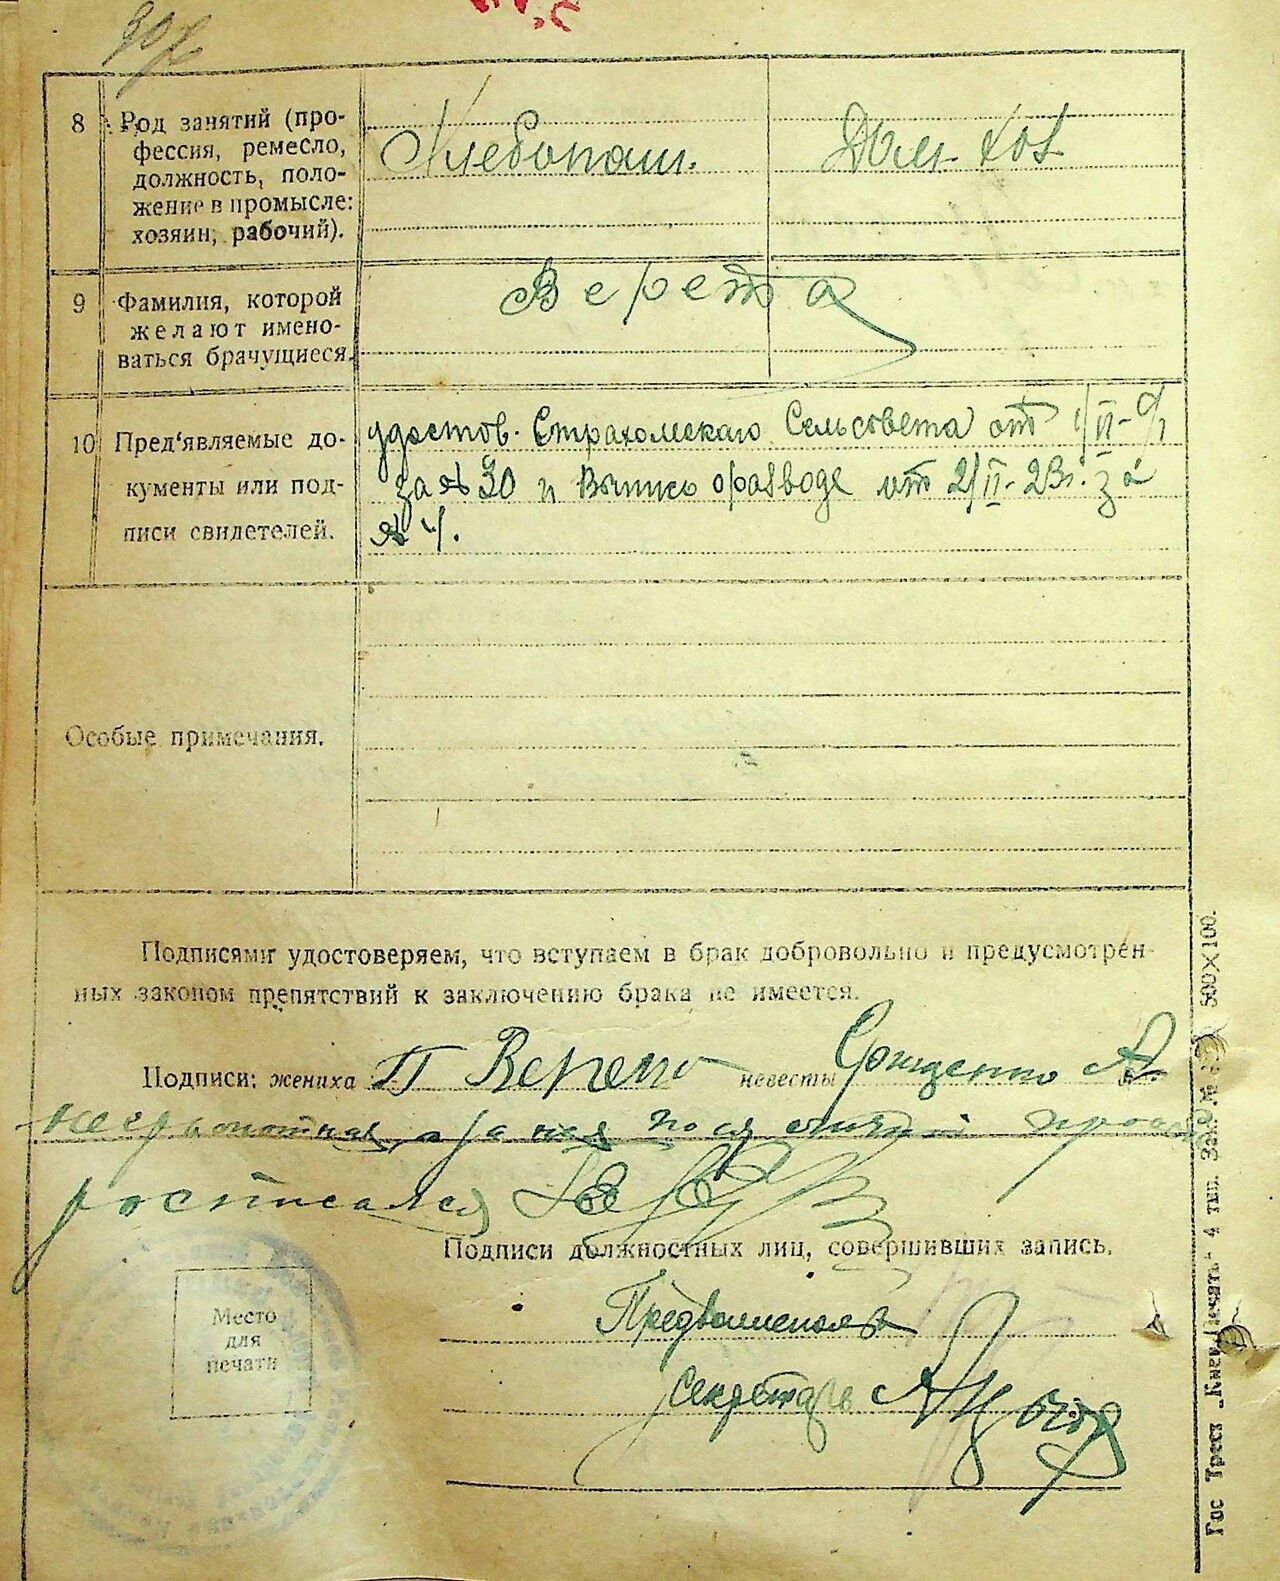 8 Род занятий (про-
фессия, ремесло,
должность, поло-
жение в промысле:
хозяин, рабочий).
Хлебопаш. Дом. хоз
9 Фамилия, которой
желают имено-
ваться брачущиеся.
Верета
10 Пред'являемые до-
кументы или под-
писи свидетелей.
удостов. Страхолмскаго Сельсовета от
за № 30 и о разводе от 2/II-23г. за
№ 4.
Особые примечания.
Подписями удостоверяем, что вступаем в брак добровольно и предусмотрен-
ных законом препятствий к заключению брака не имеется.
Подписи: жениха П Верета невесты А
неграмотная а за нея по ея личной
росписался
Подписи должностных лиц, совершивших запись.
Место
для
печати
Предволисполк
Секретарь
Гос Трест „Киев-Печать“ 4 тип. 500×100.